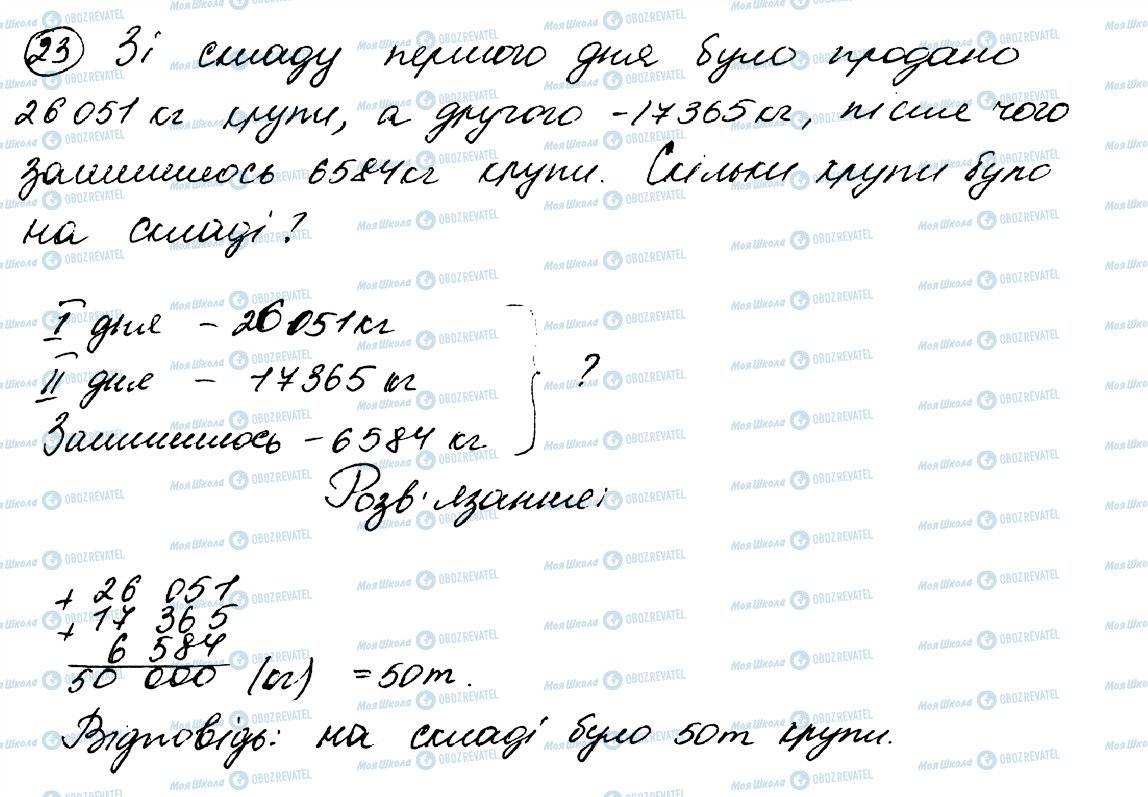 23 Зі складу першого дня було продано
26 051 кг крупи, а другого - 17365 кг, після чого
залишилось 6584 кг крупи. Скільки крупи було
на складі?
I дня - 26 051 кг
II дня - 17365 кг
?
Залишилось - 6584 кг
Розв'язання:
+ 26 051
+ 17 365
6 584
50 000 (кг) = 50 т.
Відповідь: на складі було 50 т крупи.